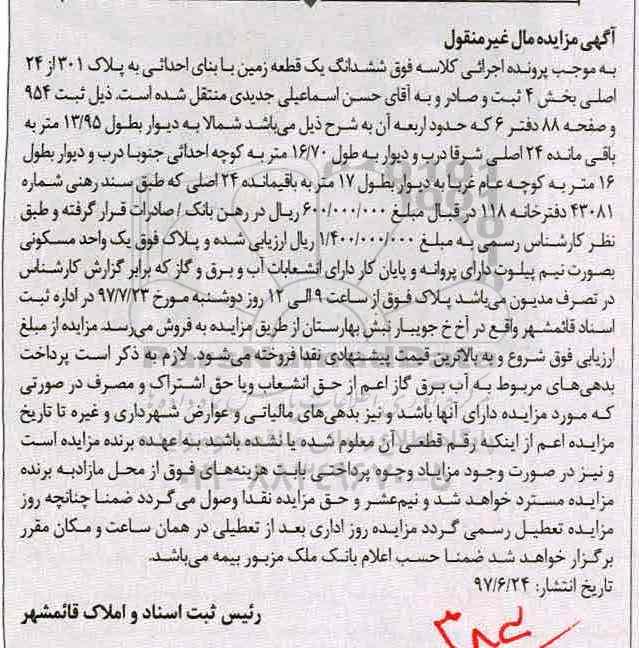 آگهی مزایده مال غیر منقول
به موجب پرونده اجرائی کلاسه فوق ششدانگ یک قطعه زمین با بنای احداثی به پلاک ۳۰۱ از ۲۴
اصلی بخش ۴ ثبت و صادر و به آقای حسن اسماعیلی جدیدی منتقل شده است. ذیل ثبت ۹۵۴
و صفحه ۸۸ دفتر ۶ که حدود اربعه آن به شرح ذیل می‌باشد شمالا به دیوار بطول ۱۳/۹۵ متر به
باقی مانده ۲۴ اصلی شرقا درب و دیوار به طول ۱۶/۷۰ متر به کوچه احداثی جنوبا درب و دیوار بطول
۱۶ متر به کوچه عام غربا به دیوار بطول ۱۷ متر به باقیمانده ۲۴ اصلی که طبق سند رهنی شماره
۴۳۰۸۱ دفترخانه ۱۱۸ در قبال مبلغ ۶۰۰/۰۰۰/۰۰۰ ریال در رهن بانک / صادرات قرار گرفته و طبق
نظر کارشناس رسمی به مبلغ ۱/۴۰۰/۰۰۰/۰۰۰ ریال ارزیابی شده و پلاک فوق یک واحد مسکونی
بصورت نیم پیلوت دارای پروانه و پایان کار دارای انشعابات آب و برق و گاز که برابر گزارش کارشناس
در تصرف مدیون می‌باشد پلاک فوق از ساعت ۹ الی ۱۲ روز دوشنبه مورخ ۹۷/۷/۲۳ در اداره ثبت
اسناد قائمشهر واقع در آخ خ جویبار نبش بهارستان از طریق مزایده به فروش می‌رسد. مزایده از مبلغ
ارزیابی فوق شروع و به بالاترین قیمت پیشنهادی نقدا فروخته می‌شود. لازم به ذکر است پرداخت
بدهی‌های مربوط به آب برق گاز اعم از حق انشعاب ویا حق اشتراک و مصرف در صورتی
که مورد مزایده دارای آنها باشد و نیز بدهی‌های مالیاتی و عوارض شهرداری و غیره تا تاریخ
مزایده اعم از اینکه رقم قطعی آن معلوم شده یا نشده باشد به عهده برنده مزایده است
و نیز در صورت وجود مازاد وجوه پرداختی بابت هزینه‌های فوق از محل مازاد به برنده
مزایده مسترد خواهد شد و نیم‌عشر و حق مزایده نقدا وصول می‌گردد ضمنا چنانچه روز
مزایده تعطیل رسمی گردد مزایده روز اداری بعد از تعطیلی در همان ساعت و مکان مقرر
برگزار خواهد شد ضمنا حسب اعلام بانک ملک مزبور بیمه می‌باشد.
تاریخ انتشار: ۹۷/۶/۲۴
رئیس ثبت اسناد و املاک قائمشهر